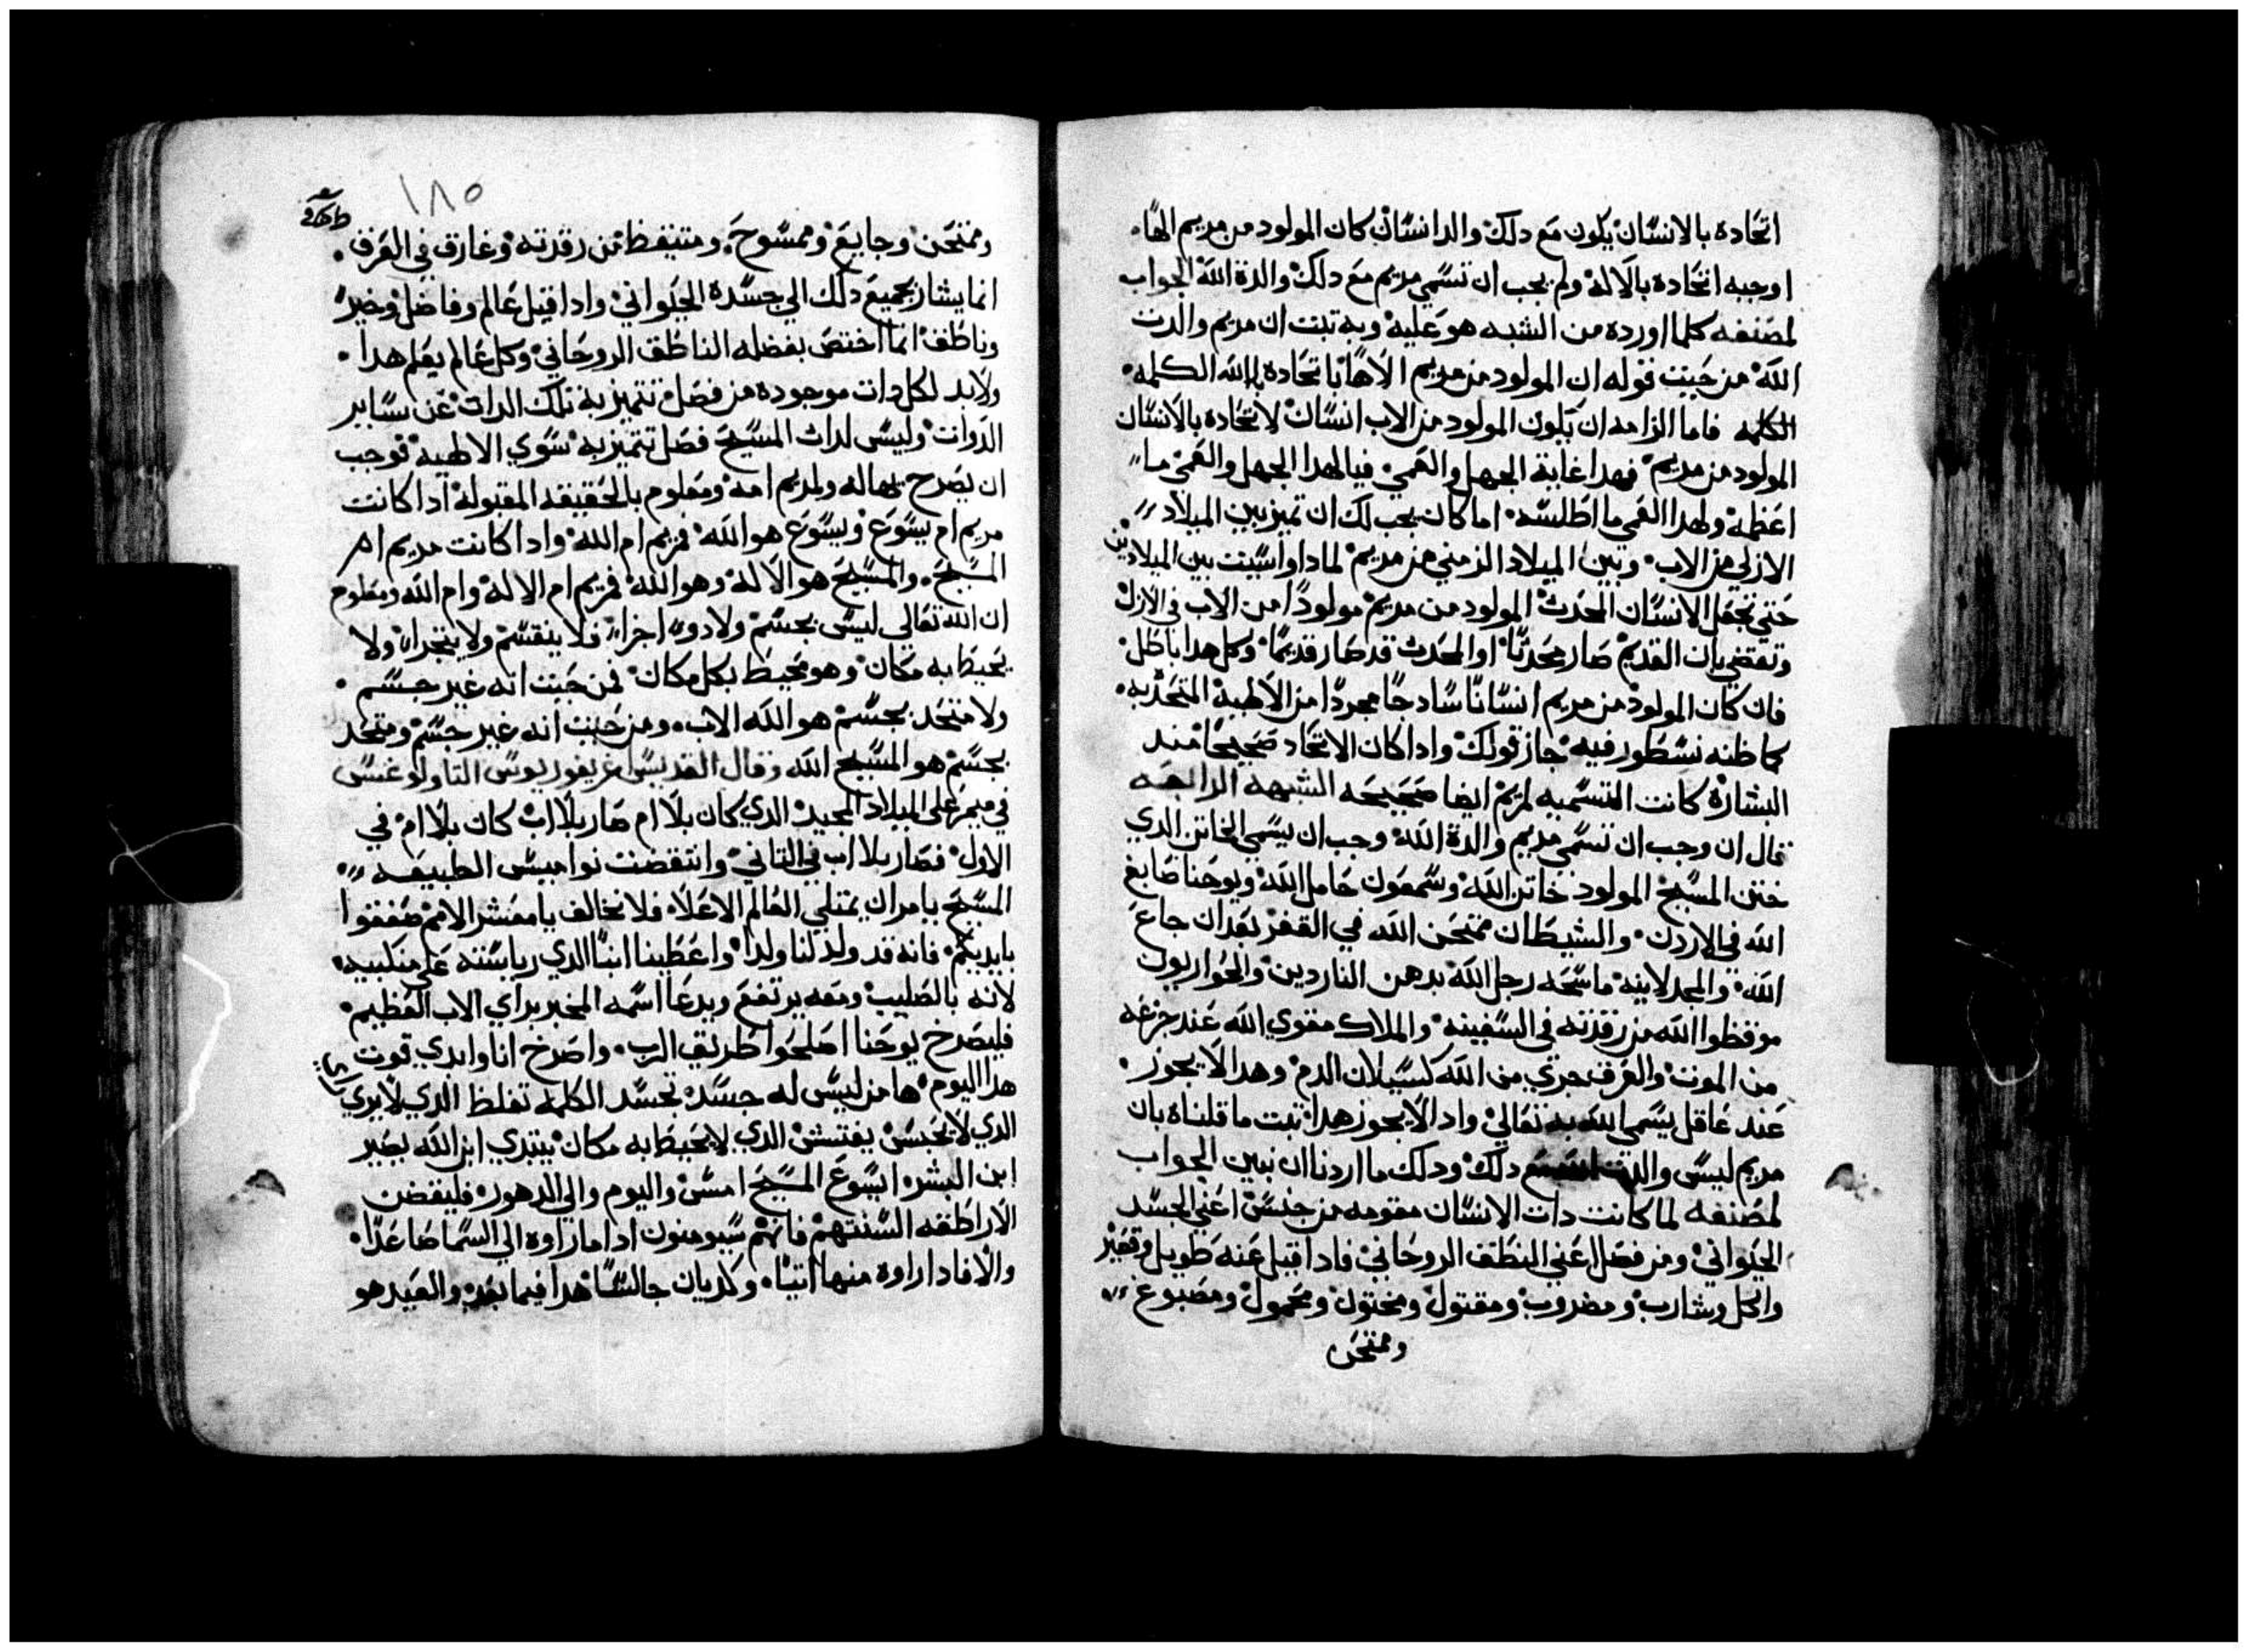 اتحاده بالانسان يكون مع دلك والد انسان كان المولود من مريم الها
اوجبه اتحاده بالاله ولم يجب ان تسمي مريم مع دلك والدة الله الجواب
لمصنفه كلما اورده من الشبه هو عليه وبه تبت ان مريم والدت
الله من حيت قوله ان المولود من مريم الاها باتحاده بالله الكلمه
الكلمه فاما الزامه ان يكون المولود من الاب انسان لاتحاده بالانسان
المولود من مريم فهدا غاية الجهل والعمي فيا لهدا الجهل والعمي ما
اعظمه ولهدا العمي ما اطلسه اما كان يجب لك ان تميز بين الميلاد
الازلي من الاب وبين الميلاد الزمني من مريم لمادا واسيت بين الميلادين
حتي تجعل الانسان المحدث المولود من مريم مولودا من الاب في الازل
وتقتضي بان القديم صار محدثا او المحدث قد صار قديما وكل هدا باطل
فان كان المولود من مريم انسانا سادجا مجردا من الالهية المتحد به
كما ظنه نسطور فيه جاز قولك وادا كان الاتحاد صحيحا مند
البشارة كانت التسميه لمريم ايضا صحيحه الشبهه الرابعه
قال ان وجب ان تسمي مريم والدة الله وجب ان يسمي الخاتن الدي
ختن المسيح المولود خاتن الله وسمعون حامل الله ويوحنا صابغ
الله في الاردن والشيطان ممتحن الله في القفر بعد ان جاع
الله والمجدلانيه ماسحه رجل الله بدهن الناردين والحواريون
موقظوا الله من رقدته في السفينه والملاك مقوي الله عند جزعه
من الموت والعرف جري من الله كسيلان الدم وهدا لا يجوز
عند عاقل يسمي الله به تعالي وادا لا يجوز هدا تبت ما قلناه بان
مريم ليسي والدت دلك ودلك ما اردنا ان نبين الجواب
لمصنفه لما كانت دات الانسان مقومه من جنس اعني الجسد
الحيواني ومن فصل اعني النطق الروحاني فادا قيل عنه طويل وقصير
واكل وشارب ومضروب ومقتول ومختون ومحمول ومصبوغ
وممتحن
١٨٥
وممتحن وجايع وممسوح ومتيقظ من رقدته وغارق في العرق
انما يشار بجميع دلك الي جسده الحيواني وادا قيل عالم وفاضل وخير
وناطق انما اختص بفضله الناطق الروحاني وكل عالم يعلم هدا
ولابد لكل دات موجوده من فصل تتميز به تلك الدات عن ساير
الدوات وليس لدات المسيح فصل تتميز به سوي الالهية فوجب
ان يصرح بها له ولمريم امه ومعلوم بالحقيقه المقبولة ادا كانت
مريم ام يسوع ويسوع هو الله فمريم ام الله وادا كانت مريم ام
المسيح والمسيح هو الاله وهو الله فمريم ام الاله وام الله ومعلوم
ان الله تعالي ليس بجسم ولا دو اجزا فلا ينقسم ولا يتجزا ولا
يحيط به مكان وهو محيط بكل مكان فمن حيت انه غير جسم
ولا متحد بجسم هو الله الاب ومن حيت انه غير جسم ومتحد
بجسم هو المسيح الله وقال القديس اغريغوريوس التاولوغس
في ميمر علي الميلاد المجيد الدي كان بلا ام صار بلا اب كان بلا ام في
الاول فصار بلا اب في التاني وانتقضت نواميس الطبيعه
المسيح يامر ان يمتلي العالم الاعلا فلا نخالف يا معشر الامم صفقوا
بايديكم فانه قد ولد لنا ولدا واعطينا ابنا الدي رياسته علي منكبيه
لانه بالصليب ومعه يرتفع ويدعا اسمه المخبر براي الاب العظيم
فليصرخ يوحنا اصلحوا طريق الرب واصرخ انا وابدي قوت
هدا اليوم ها من ليس له جسد تجسد الكلمه تغلظ الدي لا يري
الدي لا يجس يفتش الدي لا يحيط به مكان يبتدي ابن الله يصير
ابن البشر ايسوع المسيح امس واليوم والي الدهور فليغضن
الاراطقه السنتهم فانهم سيومنون ادا ما راوه الي السما صاعدا
والا فادا راوه منها اتيا وكديان جالسا هدا فيما بعد والعيد هو